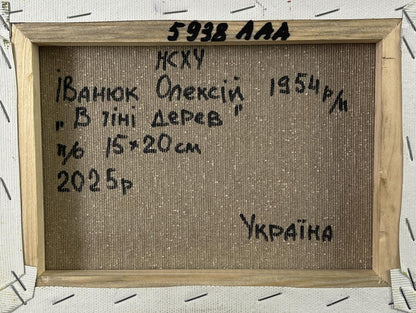 5938 ААА
НСХУ
Іванюк Олексій 1954 р/н
„В тіні дерев"
п/о 15×20 см
2025р
Україна